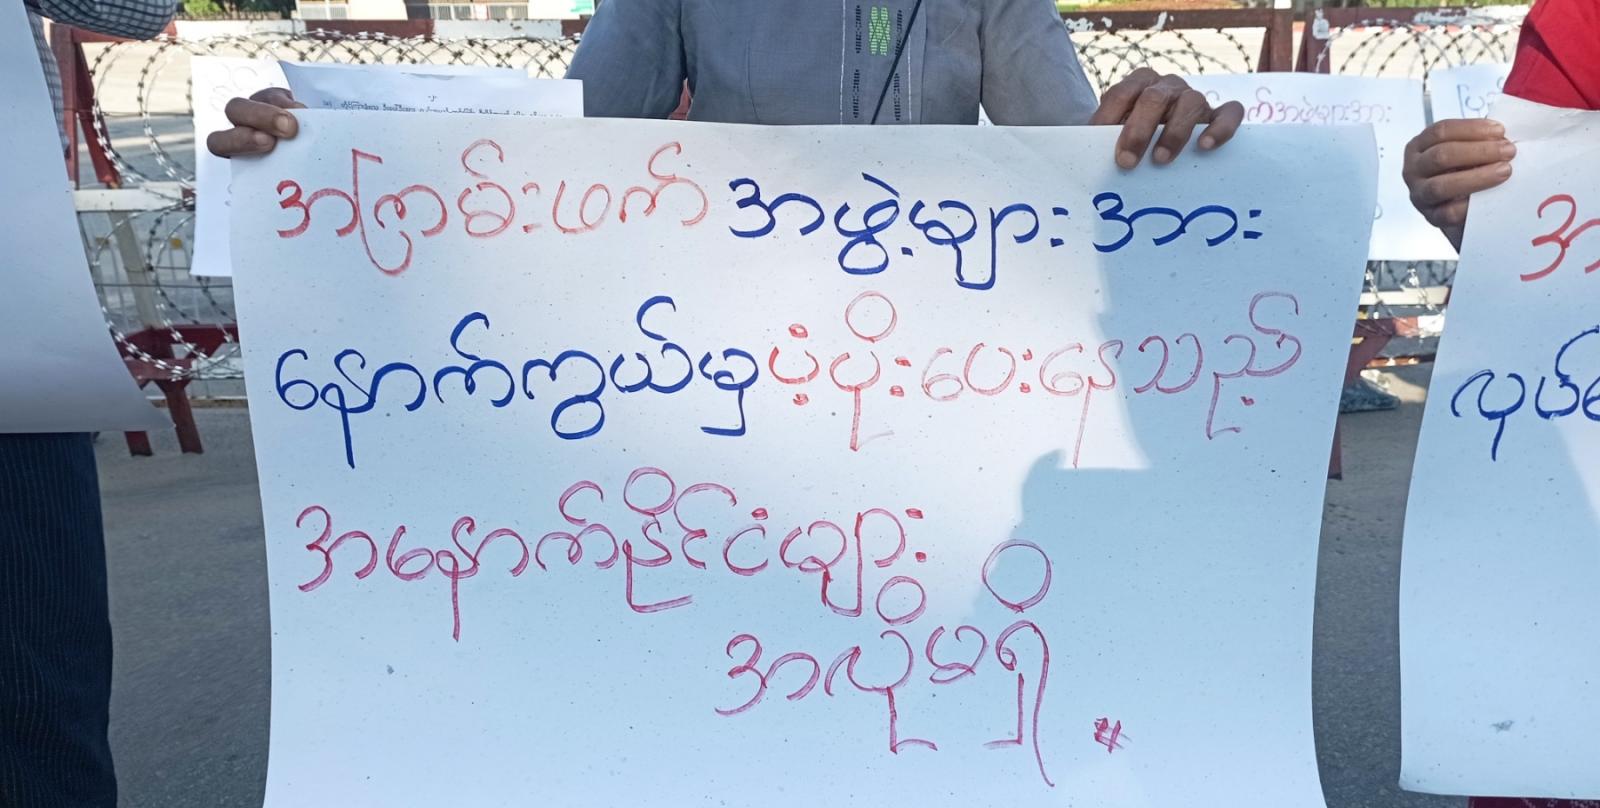 အကြမ်းဖက် အဖွဲ့များ အား
နောက်ကွယ်မှပံ့ပိုးပေးနေသည့်
အနောက်နိုင်ငံများ
အလိုမရှိ ။
က်အဖွဲ့များအား